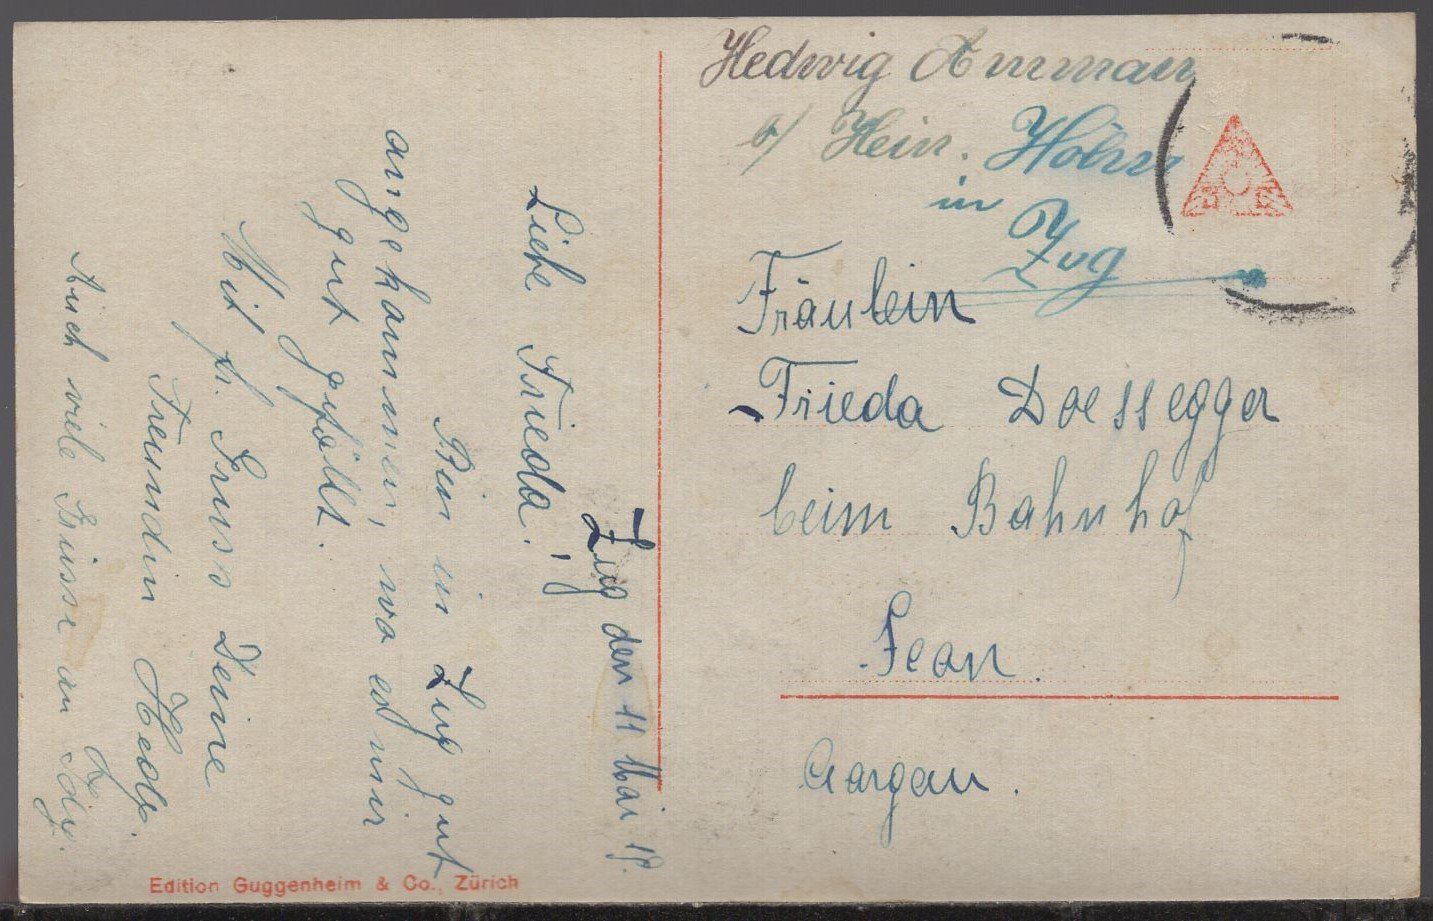 Hedwig Amman
b/ Hein. Höhn
in
Zug
Fräulein
Frieda Doessegger
beim Bahnhof
Seon.
Aargau.
Zug den 11 Mai 19.
Liebe Frieda!
Bin in Zug gut
angekommen, wo es mir
gut gefällt.
Mit fr. Gruss Deine
Freundin Hedy.
Auch viele Grüsse an Idy.
Edition Guggenheim & Co., Zürich